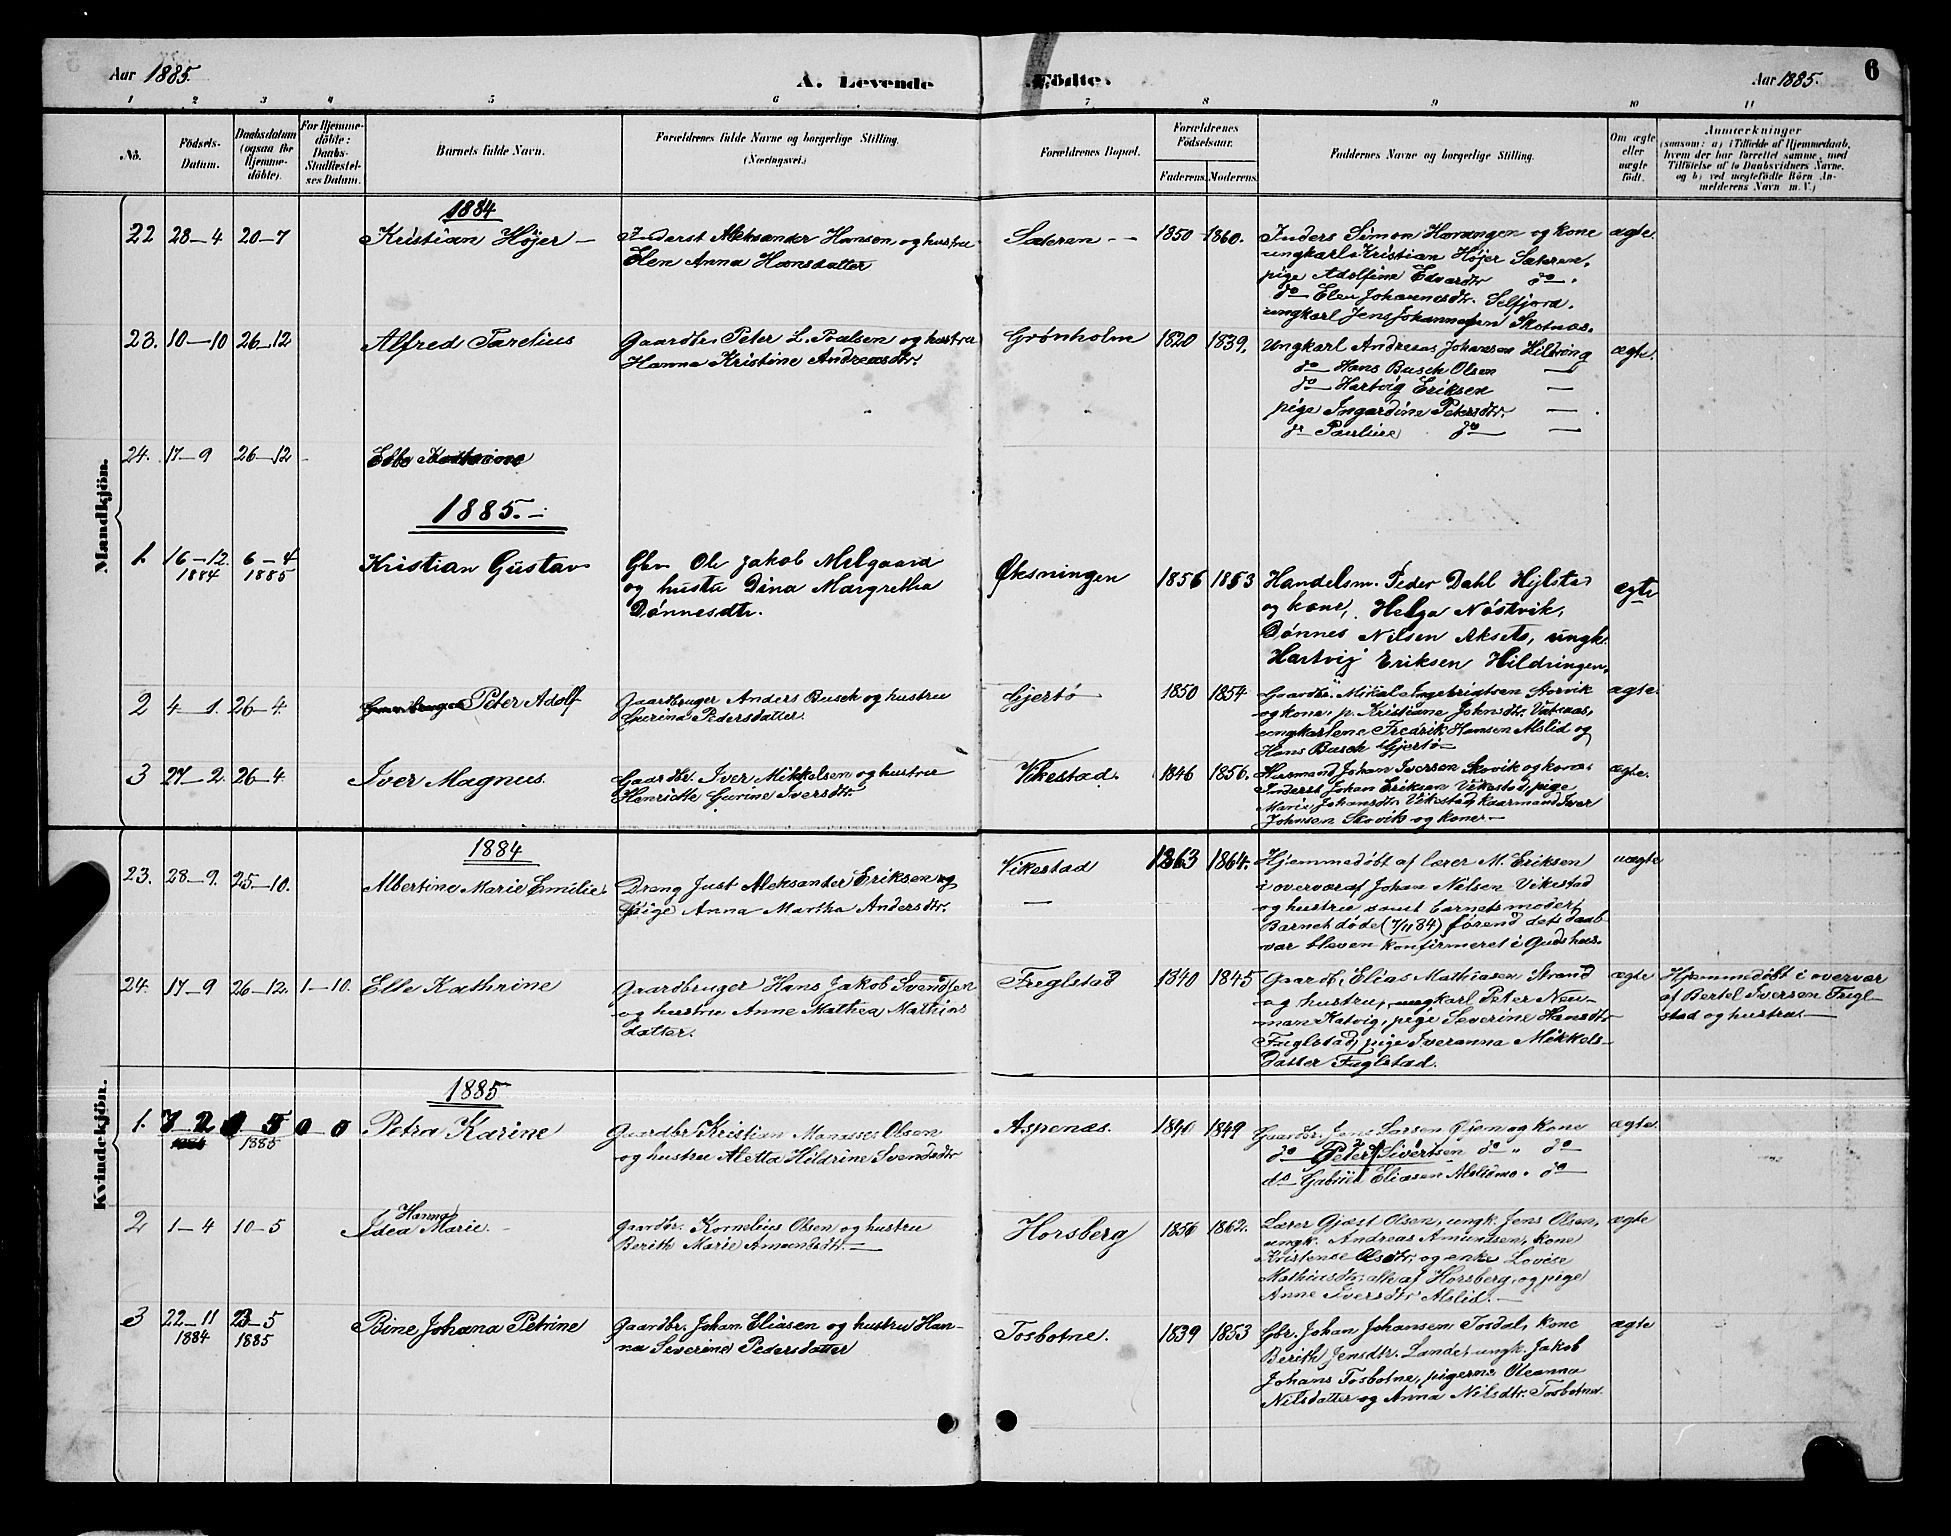 Aar 1885.
A. Levende
Födte.
Aar 1885.
6
1 2 3 4 5 6 7 8 9 10 11
No.
Födsels-Datum.
Daabsdatum (ogsaa for Hjemmedöbte).
For Hjemmedöbte: Daabs-Stadfæstelses Datum.
Barnets fulde Navn.
Forældrenes fulde Navne og borgerlige Stilling. (Næringsvei.)
Forældrenes Bopæl.
Forældrenes Födselsaar.
Faderens. Moderens.
Faddernes Navne og borgerlige Stilling.
Om ægte eller uægte födt.
Anmærkninger
(saasom: a) i Tilfælde af Hjemmedaab, hvem der har forrettet samme, med Tilföielse af to Daabsvidners Navne, og b) ved uægtefödte Börn Anmelderens Navn m. V.)
Mandkjön.
1884
22 28-4 20-7 Kristian Höjer
Inderst Aleksander Hansen og hustru
Elen Anna Hansdatter
Sæteren 1850 1860.
Inders Simon Havangen og kone
ungkarl Kristian Höjer Sæteren,
pige Adolfine Edvardtr do
do Elen Johannesdtr. Selfjord,
ungkarl Jens Johannesen Skotnæs.
ægte.
23. 10-10 26-12 Alfred Parelius
Gaardbr. Peter L. Poulsen og hustru
Hanna Kristine Andreasdtr.
Grønholm 1820 1839.
Ungkarl Andreas Johansen Hildring
do Hans Busch Olsen
do Hartvig Eriksen
pige Ingardine Petersdtr.
do Pauline do
ægte.
24. 17-9 26-12 Elle Kathrine
1885.
1. 16-12 1884 6-4 1885 Kristian Gustav
Gbr. Ole Jakob Melgaard
og hustu Dina Margretha
Dönnesdtr.
Øksningen 1856 1853
Handelsm. Peder Dahl Hjlstad
og kone, Helga Nöstvik,
Dönnes Nilsen Aksets, ungk.
Hartvig Eriksen Hildringen.
ægte
2 4-1. 26-4. Peter Adolf
Gaardbruger Anders Busch og hustru
Gurina Pedersdatter.
Gjertö 1850 1854
Gaardbr. Mikal Ingebrigtsen Storvik
og kone, p. Kristiane Johnsdtr. Vatnaas,
ungkarlene Fredrik Hansen Alslid og
Hans Busch Gjertö
ægte.
3 27-2. 26-4. Iver Magnus.
Gaardbr. Iver Mikkelsen og hustru
Henrikke Gurine Iversdtr.
Vikestad. 1846 1856.
Husmand Johan Iversen Skovik og kone.
Inderst Johan Eriksen Vikestad, pige
Marie Johansdtr. Vikestad, kaarmand Iver
Johnsen Skovik og kone.
ægte.
Kvindekjön.
1884
23. 28-9. 25-10. Albertine Marie Emilie
Dreng Just Aleksander Eriksen og
pige Anna Martha Andersdtr.
Vikestad 1863 1864.
Hjemmedøbt af lærer M. Eriksen
i overvær af Johan Nilsen Vikestad
og hustru samt barnets moder,
Barnet døde (7/11 84) førend dets daab
var bleven konfirmeret i Guds hus.
uægte
24. 17-9 26-12. 1-10. Elle Kathrine
Gaardbruger Hans Jakob Svendsen
og hustru Anne Mathea Mathias
datter.
Fuglstad 1840 1845
Gaardb. Elias Mathiasen Strand
og hustru, ungkarl Peter Neu-
man Katvig, pige Severine Hansdtr
Fuglstad, pige Iveranna Mikkels-
datter Fuglstad.
ægte
Hjemmedøbt i overvær
af Bertel Iversen Fugl-
stad og hustru.
1885
1. 1885 Petra Karine
Gaardbr. Kristian Manasses Olsen
og hustru Aletta Hildrine Svendsdtr
Aspenæs. 1840 1849
Gaardbr. Jens Larsen Hjem og kone
do Peter Sivertsen do do
do Gabriel Eliasen do
ægte.
2 1-4 10-5 Idea Hanna Marie.
Gaardbr. Kornelius Olsen og hustru
Berith Marie Amundsdtr.
Horsberg 1856 1862.
Lærer Gjæst Olsen, ungk. Jens Olsen,
ungk. Andreas Amundsen, kone
Kristense Olsdtr. og enke Lovise
Mathiasdtr. alle af Horsberg, og pige
Anne Iversdtr Alslid.
ægte
3 22-11 1884 23-5 1885 Bine Johana Petrine
Gaardbr. Johan Eliasen og hustru Han-
na Severine Pedersdatter
Tosbotne. 1839 1853
Gbr. Johan Johansen Tosdal, kone
Berith Jensdtr. Lande, ungk. Jakob
Johans Tosbotne, pigerne Oleanna
Nilsdatter og Anna Nilsdtr. Tosbotne.
ægte